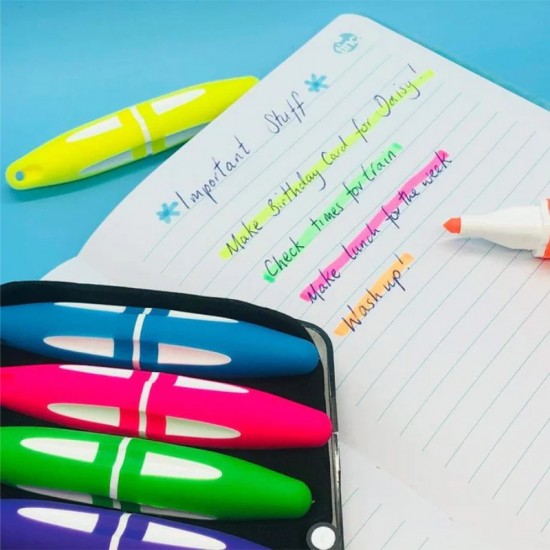 * Important Stuff *
Make Birthday Card for Daisy!
Check times for train
Make lunch for the week
Wash up!